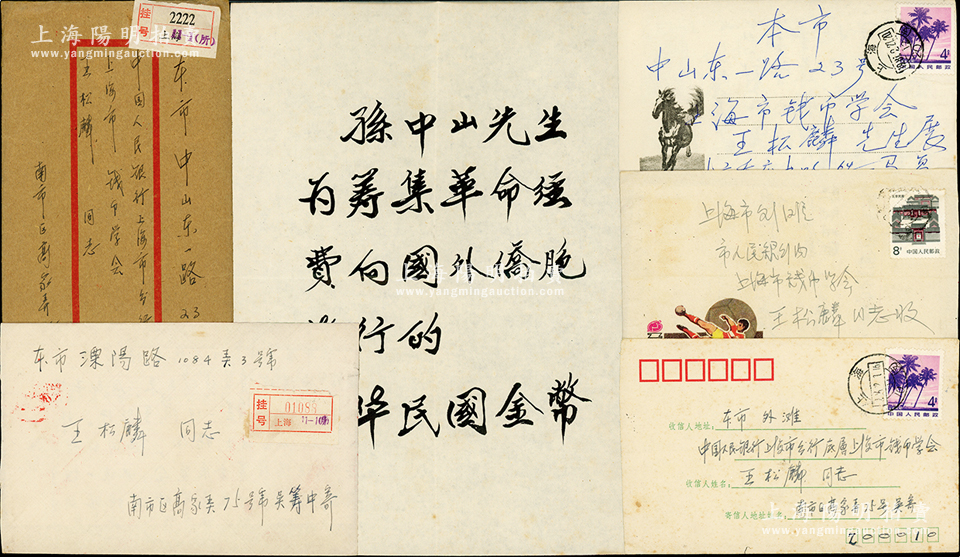 上海陽明拍賣
www.yangmingauction.com
挂号
2222
上海
(所)
本市中山东一路23
中国人民银行上海市分行
上海市钱币学会
王松麟 同志
南市区高家弄
孫中山先生
为筹集革命经
費向國外僑胞
行的
华民國金幣
上海陽明拍賣
www.yangmingauction.com
本市
中山东一路23号
海市钱币学会
王松麟 先生展
4分
中国人民邮政
上海
上海市外滩
市人民银行内
上海市钱币学会
王松麟同志收
8分
中国人民邮政
本市溧陽路1084弄3号
挂号
01086
上海
王松麟 同志
南市区高家弄75号吴筹中寄
收信人地址:
本市 外滩
中国人民银行上海市分行底层上海市钱币学会
收信人姓名:
王松麟 同志
寄信人地址姓名:
南市区高家弄75号吴寄
200010
4分
中国人民邮政
上海
上海陽明拍賣
www.yangmingauction.com